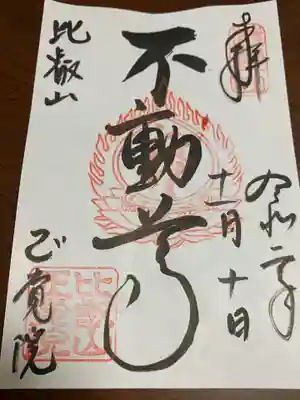 奉拝
令和二年
十一月十日
不動尊
比叡山
正覚院